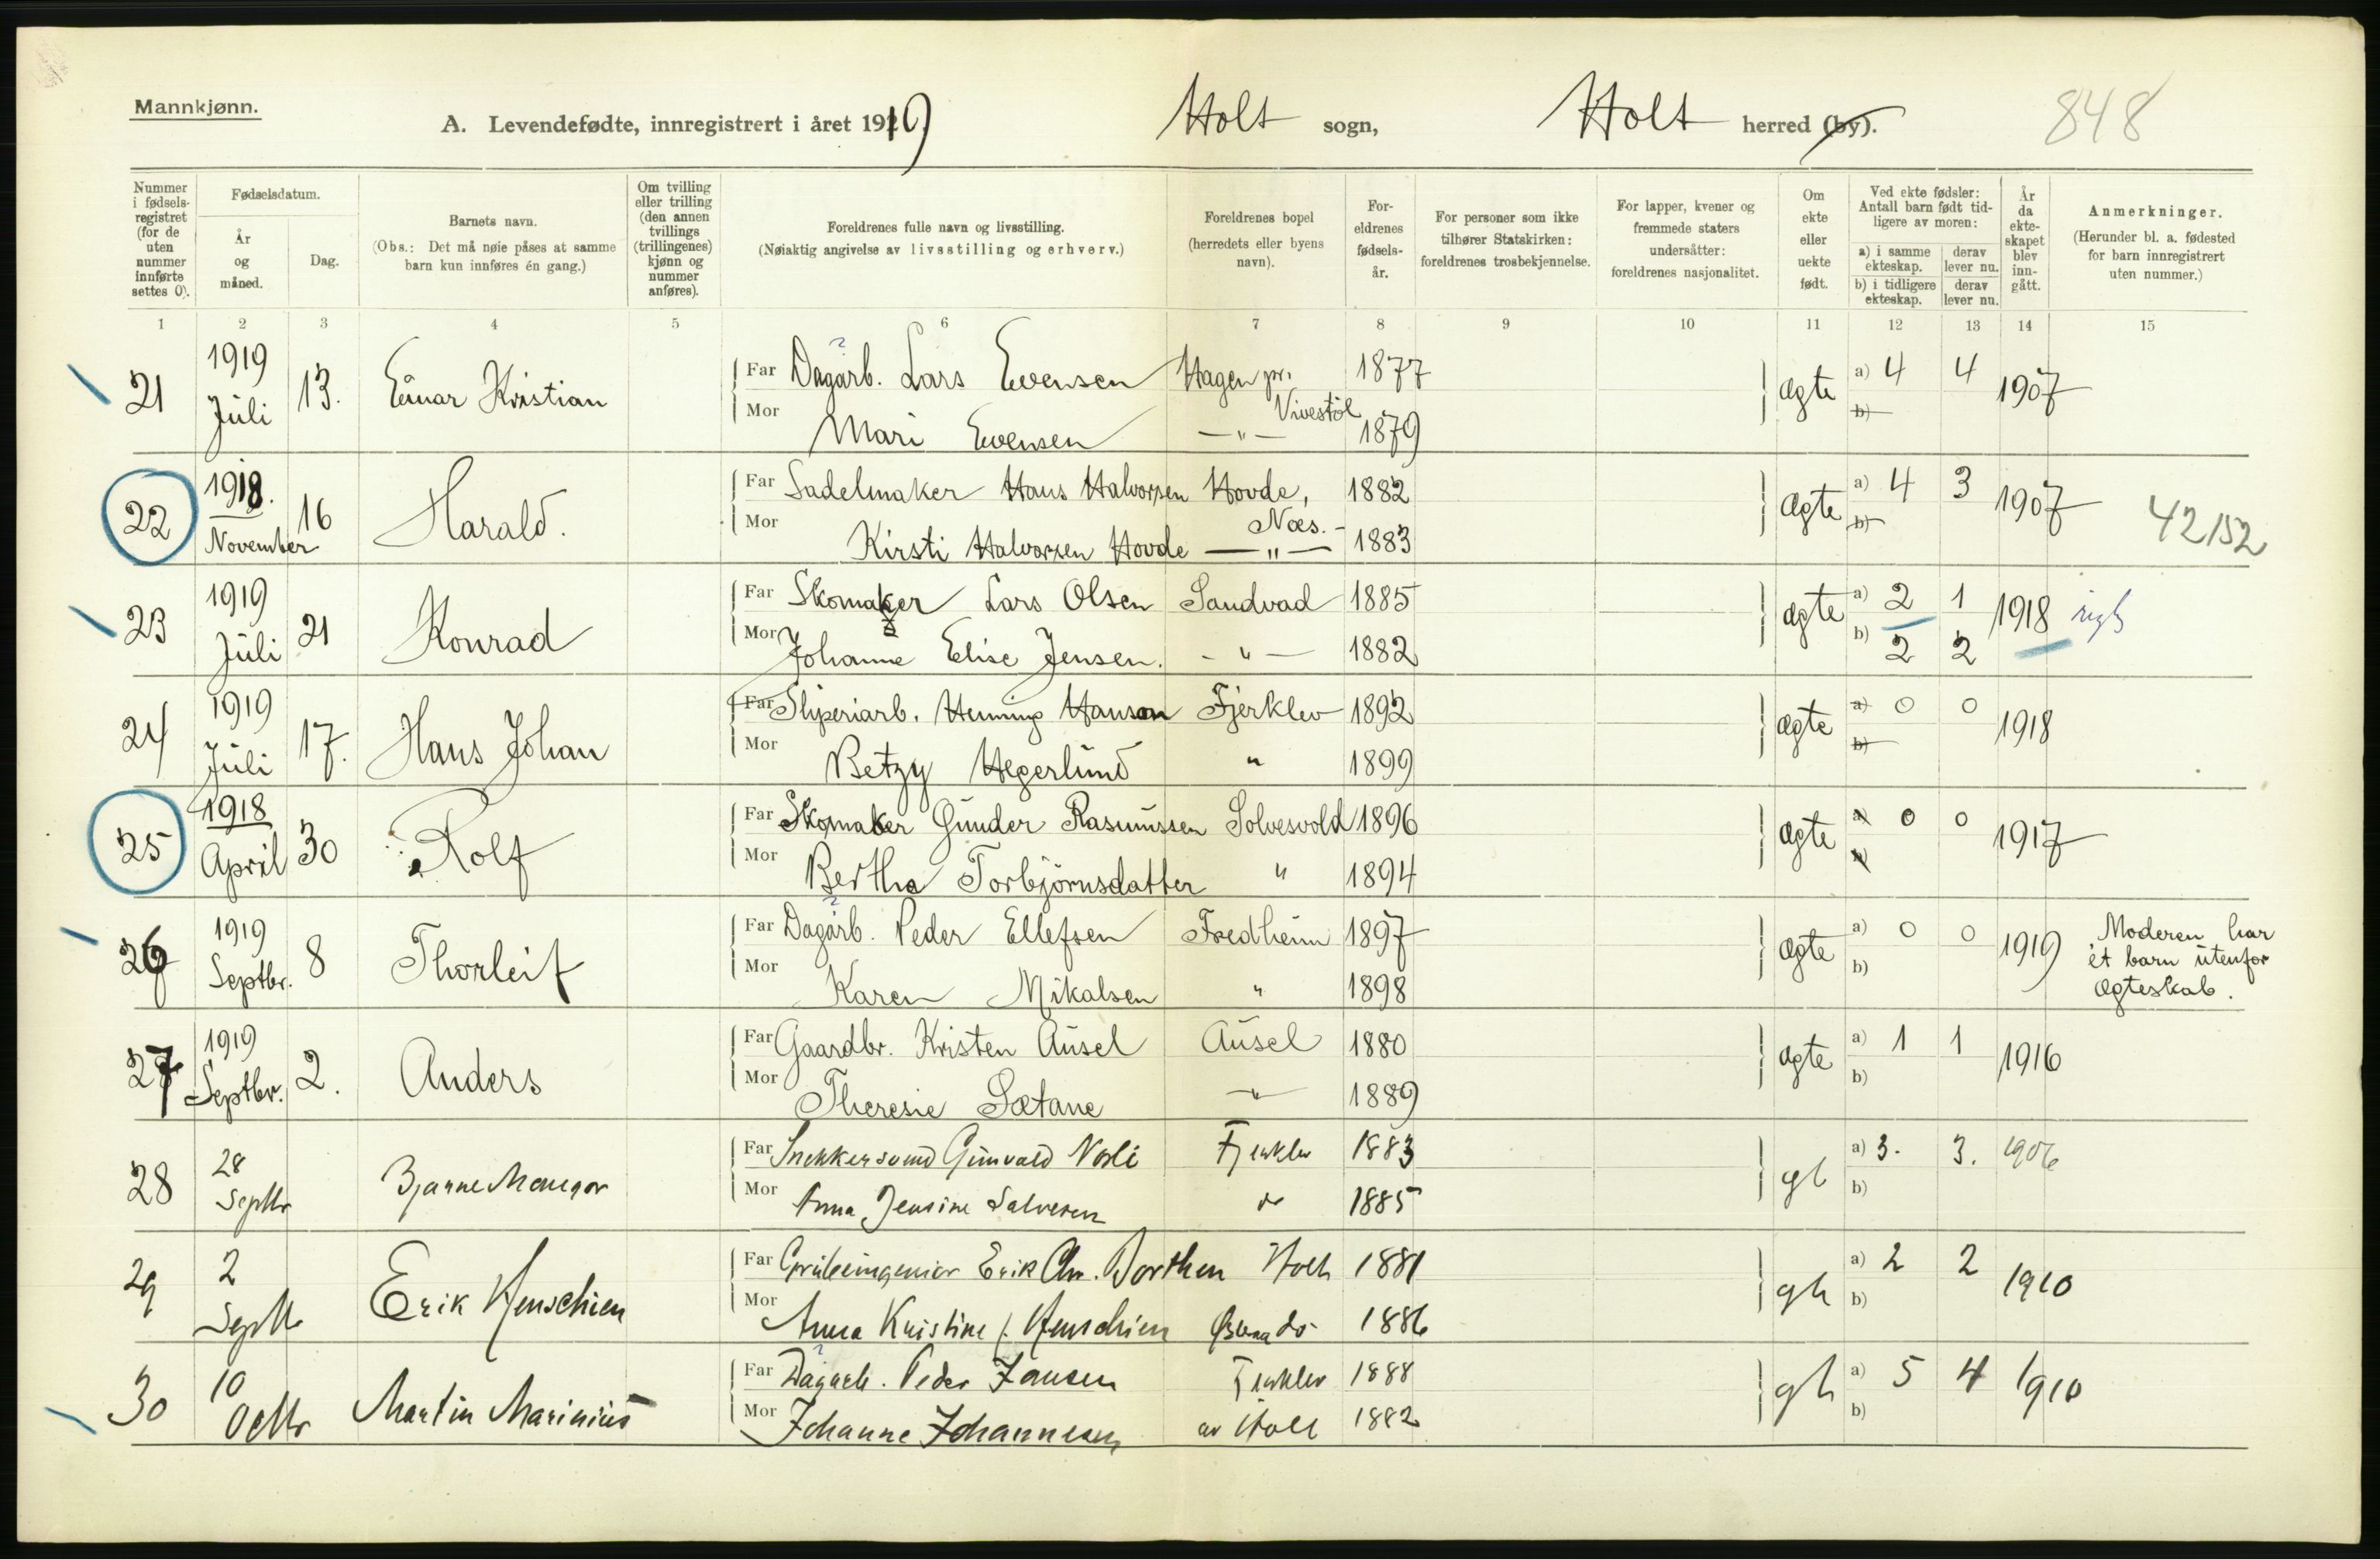 Mannkjønn.
A. Levendefødte, innregistrert i året 1919
Holt sogn, Holt herred (by).
848
Nummer i fødselsregistret (for de uten nummer innførte settes 0).
Fødselsdatum.
År og måned.
Dag.
Barnets navn.
(Obs.: Det må nøie påses at samme barn kun innføres én gang.)
Om tvilling eller trilling (den annen tvillings (trillingenes) kjønn og nummer anføres).
Foreldrenes fulle navn og livsstilling.
(Nøiaktig angivelse av livsstilling og erhverv.)
Foreldrenes bopel (herredets eller byens navn).
Foreldrenes fødselsår.
For personer som ikke tilhører Statskirken: foreldrenes trosbekjennelse.
For lapper, kvener og fremmede staters undersåtter: foreldrenes nasjonalitet.
Om ekte eller uekte født.
Ved ekte fødsler: Antall barn født tidligere av moren:
a) i samme ekteskap. derav lever nu.
b) i tidligere ekteskap. derav lever nu.
År da ekteskapet blev inngått.
Anmerkninger.
(Herunder bl. a. fødested for barn innregistrert uten nummer.)
1 2 3 4 5 6 7 8 9 10 11 12 13 14 15
21 1919 Juli 13. Einar Kristian
Far Dagarb. Lars Evensen Hagen pr. Vivestöl 1877
Mor Mari Evensen —"— 1879
Ægte a) 4 4 b) 1907
22 1918. November 16 Harald.
Far Sadelmaker Hans Halvorsen Hovde, Næs. 1882
Mor Kirsti Halvorsen Hovde —"— 1883
Ægte a) 4 3 b) 1907 42152
23 1919 Juli 21 Konrad
Far Skomaker Lars Olsen Sandvad 1885
Mor Johanne Elise Jensen. -"- 1882
Ægte a) 2 1 b) 2 2 1918
24 1919 Juli 17. Hans Johan
Far Sliperiarb. Henning Hanson Fjerklev 1892
Mor Betzy Hegerlund " 1899
Ægte a) 0 0 b) 1918
25 1918 April 30 Rolf
Far Skomaker Gunder Rasmussen Solvesvold 1896
Mor Bertha Torbjörnsdatter " 1894
Ægte a) 0 0 b) 1917
26 1919 Septbr. 8 Thorleif
Far Dagarb. Peder Ellefsen Fredheim 1897
Mor Karen Mikalsen " 1898
Ægte a) 0 0 b) 1919 Moderen har ét barn utenfor Ægteskab.
27 1919 Septbr. 2. Anders
Far Gaardbr. Kristen Ausel Ausel 1880
Mor Theresie Sætane " 1889
Ægte a) 1 1 b) 1916
28 28 Septbr Bjarne
Far Snekkersvend Gunvald Fjerklev 1883
Mor Anna Jensine Salvesen do 1885
a) 3. 3. b) 1906
29 2 Septbr Erik Henschien
Far Grubeingeniør Erik Chr. Borthen Holt 1881
Mor Anna Kristine f. Henschien do 1886
a) 2 2 b) 1910
30 10 Octbr Martin Marinius
Far Dagarb. Peder Jansen Fjerklev 1888
Mor Johanne Johannesen av Holt 1882
a) 5 4 b) 1910